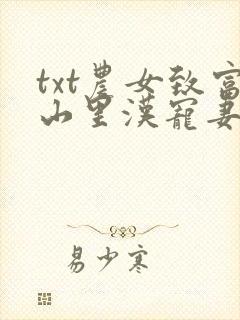 txt農女致富
山里漢寵妻
易少寒